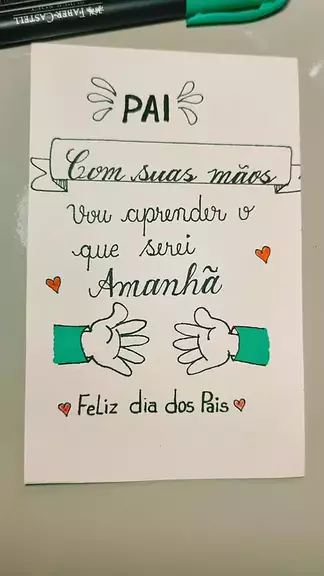 FABER-CASTELL
PAI
Com suas mãos
Vou aprender o
que serei
Amanhã
Feliz dia dos Pais